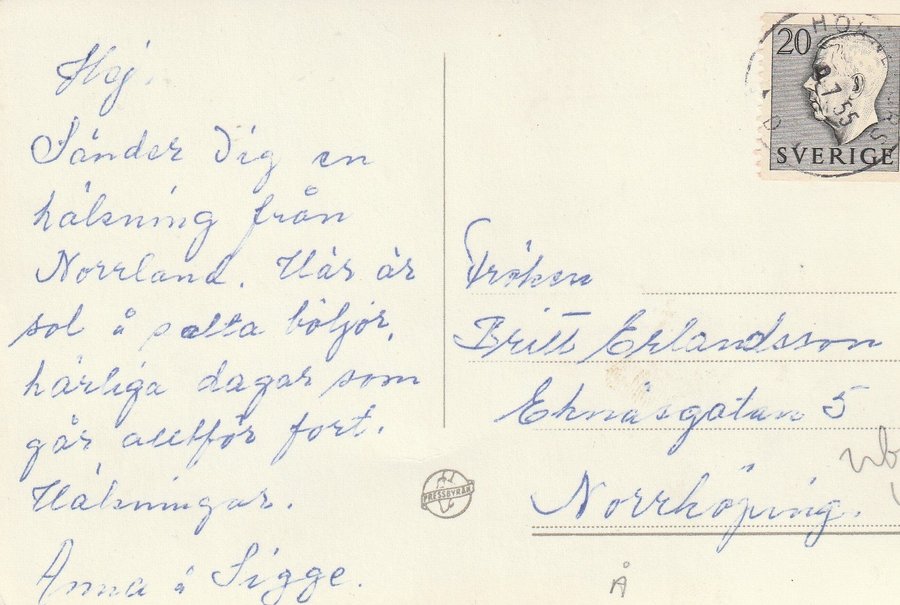 Hej.
Sänder Dig en
hälsning från
Norrland. Här är
sol å salta böljor,
härliga dagar som
går alltför fort.
Hälsningar.
Anna å Sigge.
20
SVERIGE
7.55
Fröken
Britt Erlandsson
Eknäsgatan 5
Norrköping.
PRESSBYRÅN
Å